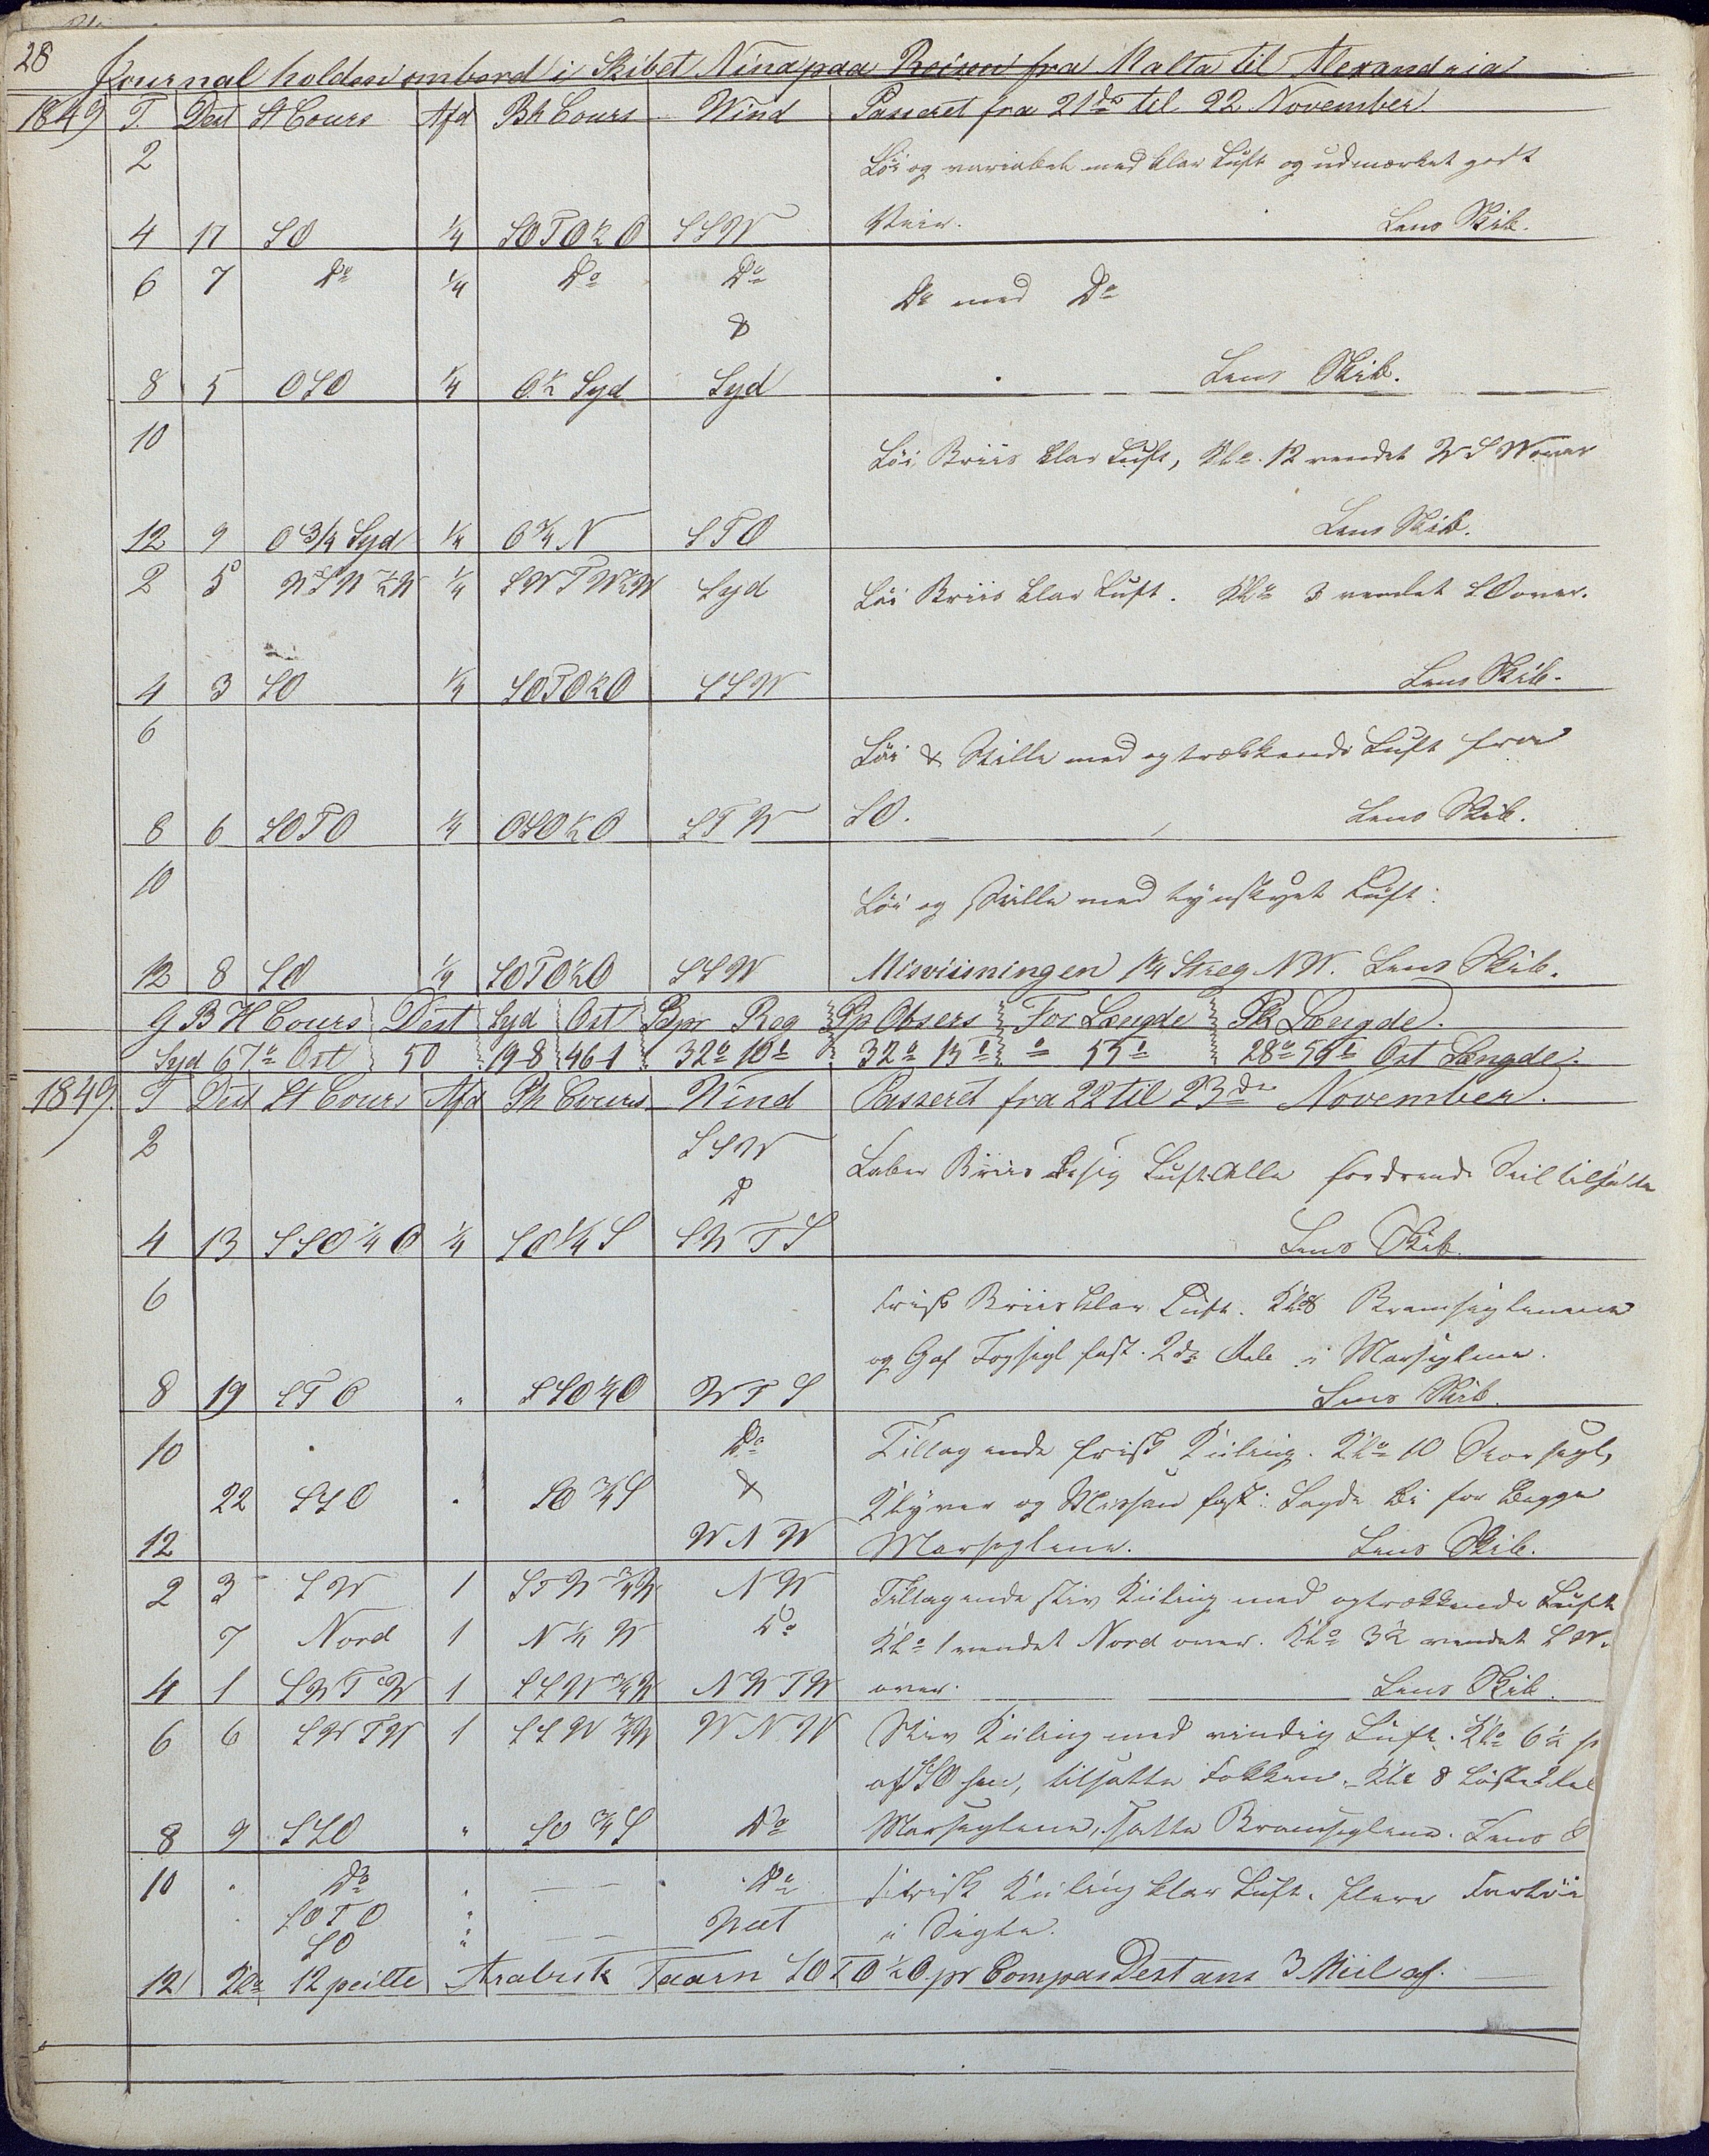 28
Journal holden ombord i Skibet Nina paa Reisen fra Malta til Alexandria
1849 T. Dest St Cours Afd Bh Cours Wind Passeret fra 21de til 22 November
2 Löi og variabel med klar Luft og udmærket godt
4 17 SO 1/4 SOTO½O SSW Veir. Lens Skib.
6 7 Do 1/4 Do Do Do med Do
&
8 5 OSO 1/4 O½ Syd Syd Lens Skib.
10 Löi Briis klar Luft, Klo. 12 vendet WSW over
12 9 O 3/4 Syd 1/4 O¾N STO Lens Skib.
2 5 WSW½W 1/4 SWTW½W Syd Löi Briis klar Luft. Klo 3 vendet SO over.
4 3 SO 1/4 SOTO½O SSW Lens Skib.
6 Löi & Stille med optrækkende Luft fra
8 6 SOTO 1/4 OSO½O STW SO. Lens Skib.
10 Löi og Stille med tynskyet Luft.
12 8 SO 1/4 SOTO½O SSW Misviisningen 1¼ Streg NW. Lens Skib.
G B H Cours Dest Syd Ost Bpr Reg Bp Obsers For Længde Pk Længde.
Syd 67° Ost 50 19-8 46-1 32° 10' 32° 15' ° 55' 28° 54' Ost Længde.
1849. T Dest St Cours Afd Bh Cours Wind Passeret fra 22 til 23de November.
2 SSW Laber Briis disig Luft. Alle fordrende Seil tilsatte
&
4 13 SSO¼O 1/4 SO¼S SWTS Lens Skib.
6 Frisk Briis klar Luft. Klo 8 Bramseglenene
og Gaf Topsegl fast. 2de Reb i Marseglene.
8 19 STO " SSO¼O WTS Lens Skib.
10 Do Tiltagende frisk Kuling. Klo 10 Storsegl,
22 SSO " SO¾S & Klyver og Mesan fast. Lagde bi for begge
12 WNW Marseglene. Lens Skib.
2 3 SW 1 STW¾W NW Tiltagende stiv Kuling med optrækkende Luft
7 Nord 1 N¼W Do Klo 1 vendet Nord over. Klo 3½ vendet SW.
4 1 SWTW 1 SSW¾W NWTW over. Lens Skib.
6 6 SWTW 1 SSW¾W WNW Stiv Kuling med vindig Luft. Klo 6½
af SSO hen, tilsatte Fokken. Klo 8
8 9 SSO " SO¾S Do Marseglene, satte Bramseglene. Lens
10 " Do " Do Frisk Kuling klar Luft. flere Fartöi
SOTO " West i Sigte.
SO "
12 Klo 12 peilte Arabisk Taarn SOTO½O. pr Compas Destans 3 Miil af.